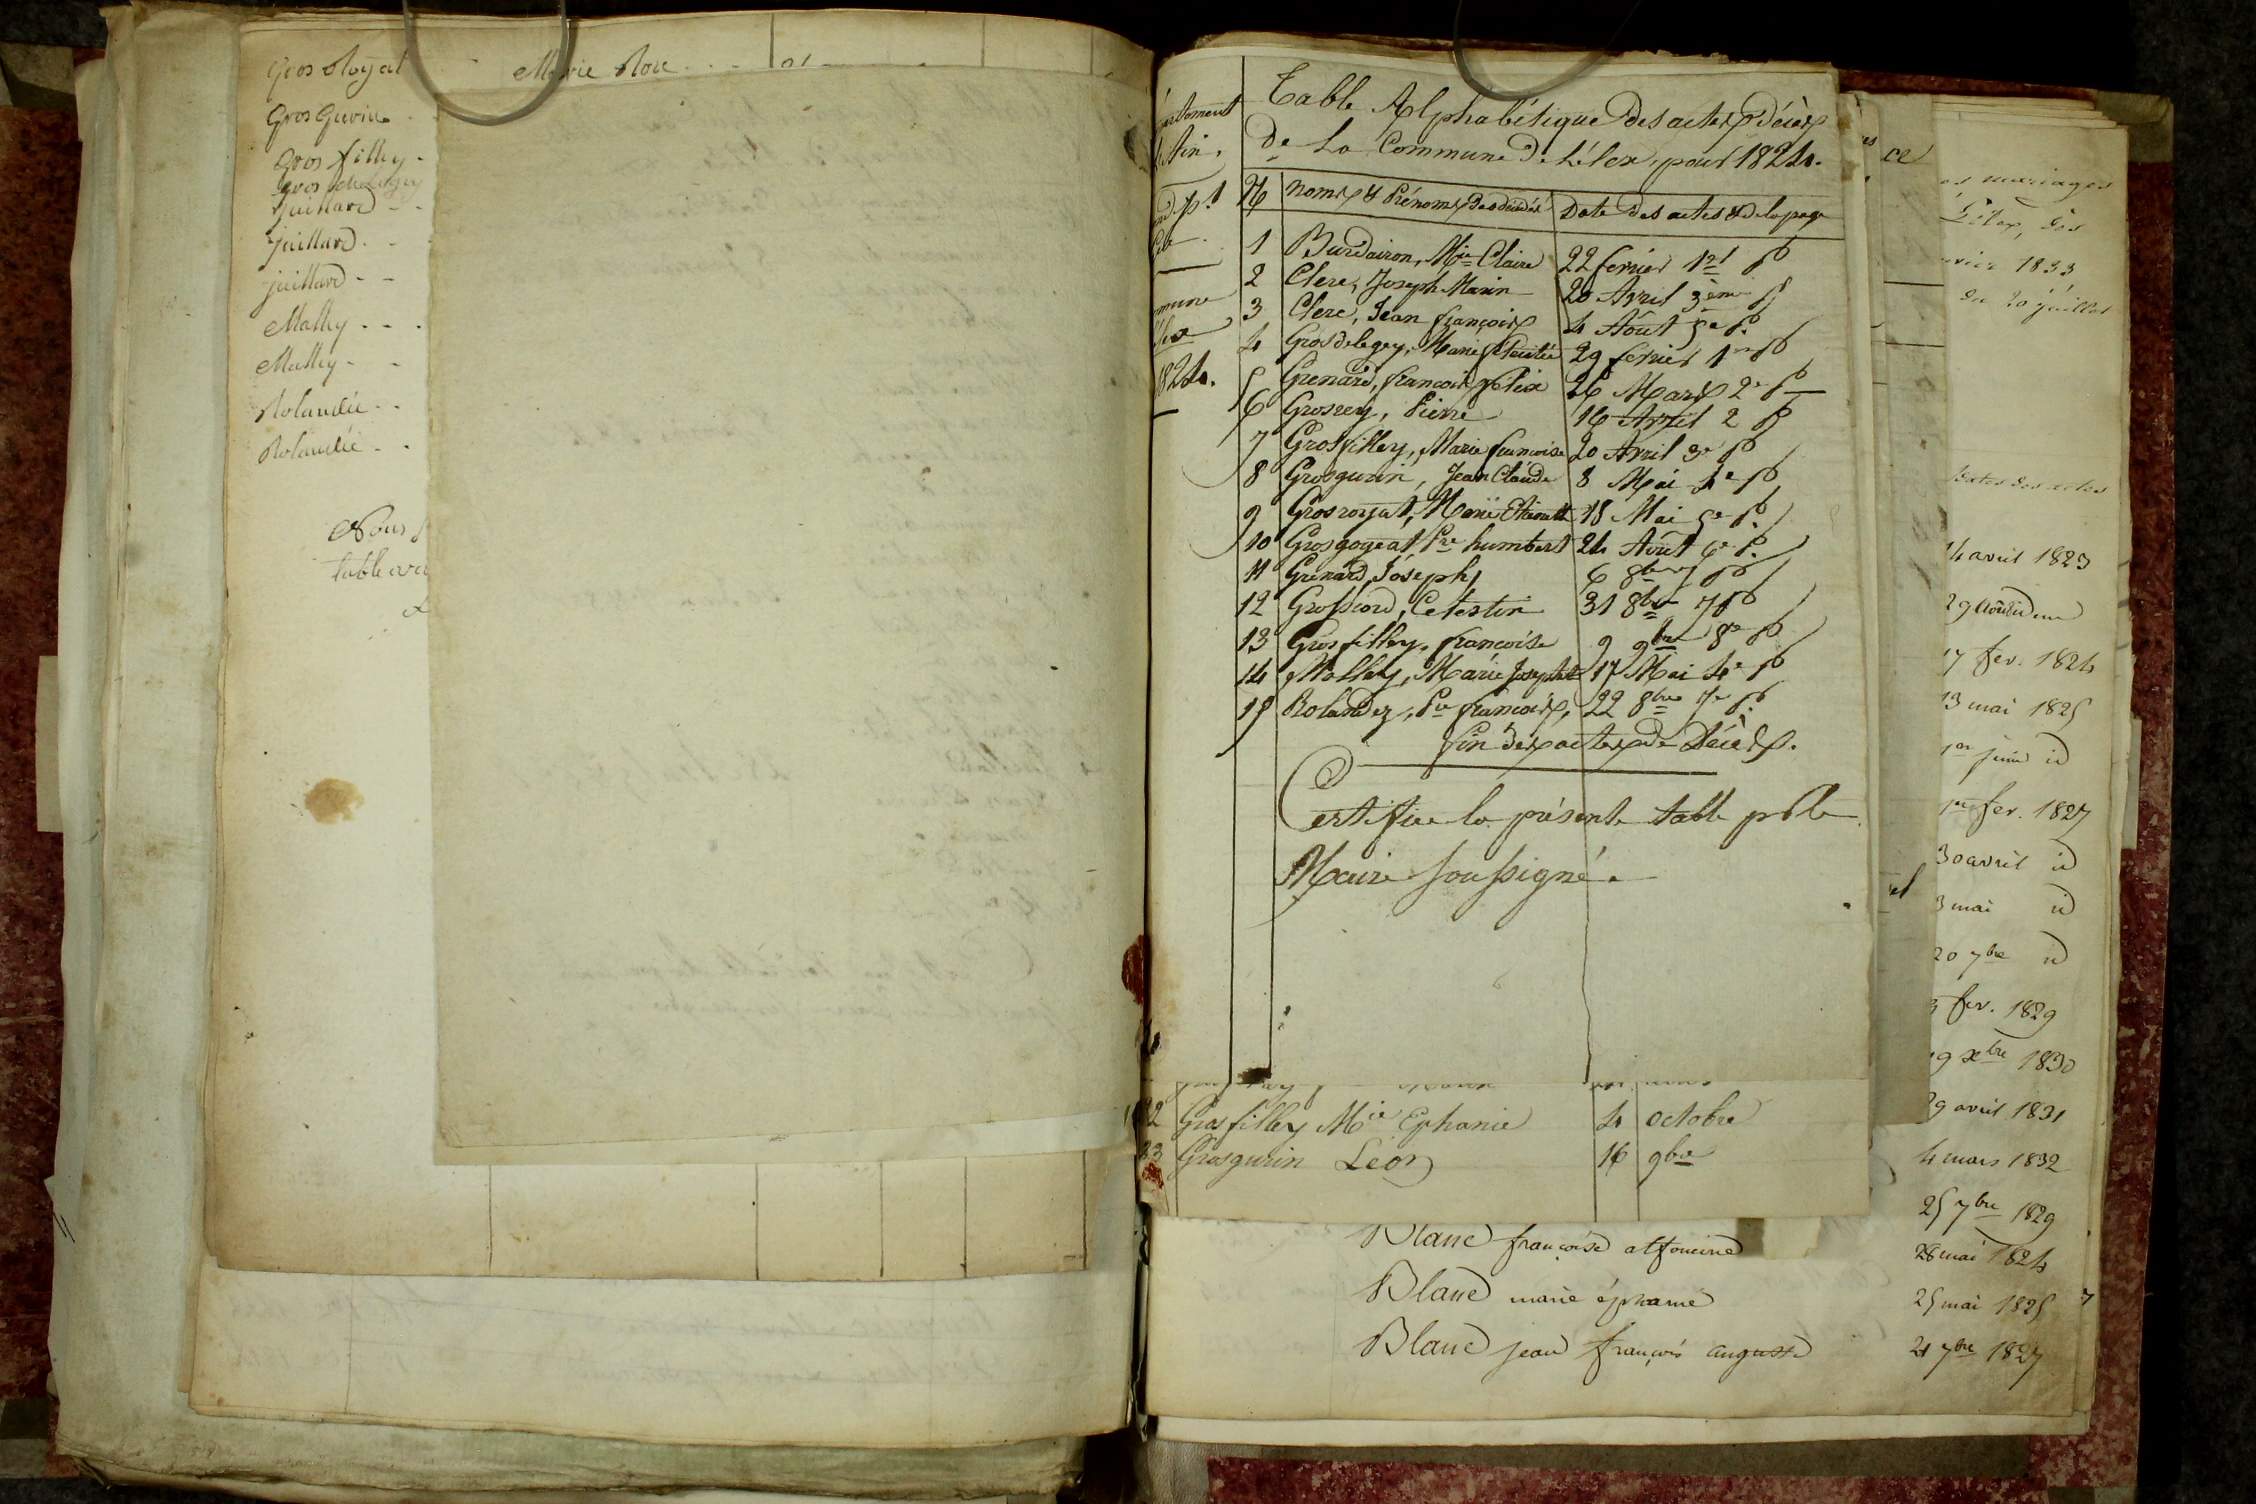 Marie
Gros Gurin
Gros filley
juillard
juillard
juillard
Mathy
Mathy
Rolandée
Rolandée
Nous
table
Table Alphabétique des actes de décès
De La Commune de Lélex, pour 1824.
No Noms & Prénoms des décédés Date des actes & de la page
1 Burdairon, Mie Claire 22 fevrier 1re p
2 Clerc, Joseph Marin 20 Avril 3ème p
3 Clerc, Jean françois 4 Aôut 5e p.
4 Grosdelegey, Marie félicitée 29 fevrier 1re p
5 Grenard, françois félix 26 Mars 2e p
6 Grosrey, Pierre 16 Avril 2 p
7 Grosfilley, Marie francoise 20 Avril 3e p
8 Grosgurin, Jean Claude 8 Mai 4e p
9 Grosroyat, Marie 18 Mai 5e p.
10 Grosgogeat, Pre humbert 24 Aôut 6e p.
11 Grenard, Joséph 6 8bre p
12 Grossiord, Celestin 31 8bre 7 p
13 Grosfilley, francoise 9 9bre 8e p
14 Molley, Marie Josephte 17 Mai 4e p
15 Rolandez, Pre françois, 22 8bre 7e p.
fin des actes de Décès.
Certifiée la présente table p le
Maire Soussigné.
artement
mmune
1824.
2 Grosfilley Mie Ephanie 4 octobre
33 Grosgurin Léon 16 9bre
Blanc françoise
Blanc marie éphanie
Blanc jean françois auguste
ce
es mariages
Lélex, dès
1833
du 20 juillet
dates des actes
14 avril 1823
29 Août idem
17 fev. 1824
13 mai 1825
1er juin id
1er fev. 1827
30 avril id
3 mai id
20 7bre id
3 fev. 1829
19 xbre 1830
29 avril 1831
4 mars 1832
25 7bre 1829
28 mai 1824
25 mai 1825
21 7bre 1827